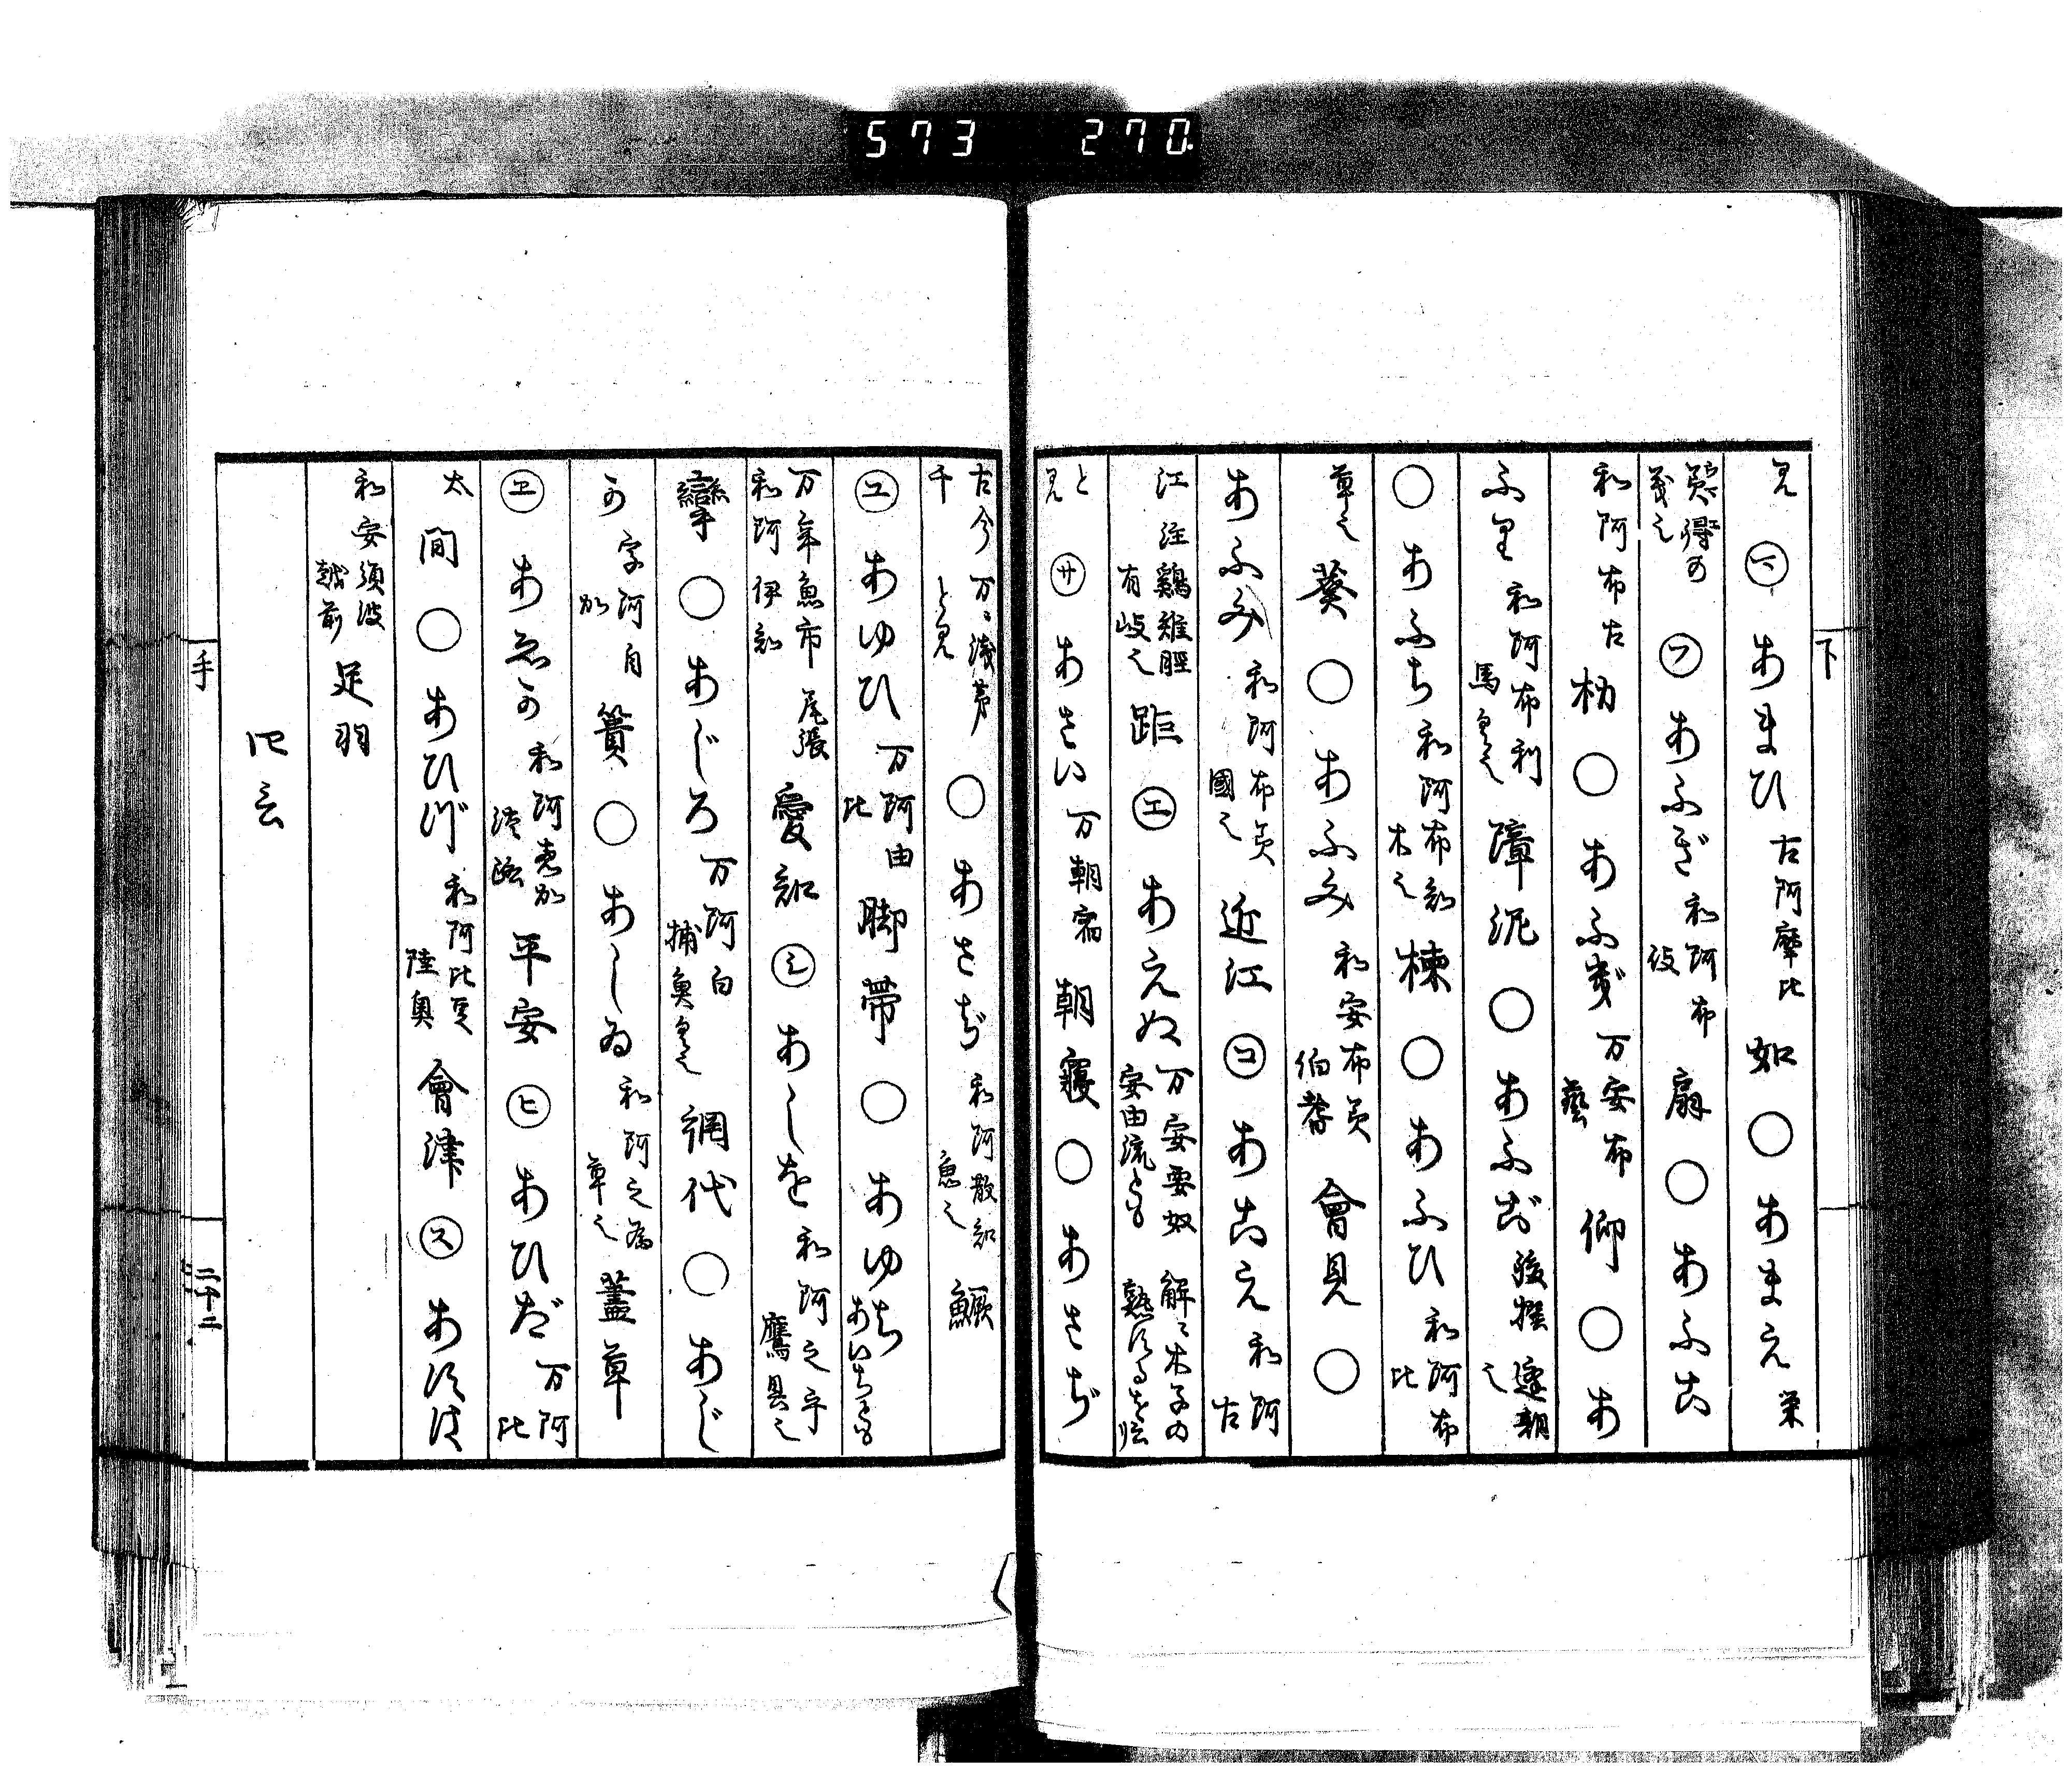 573 270
下
見 ㋮ あまひ 古阿摩比 如 ○ あまえ 栄
㋫ あふぎ 和阿布伎 扇 ○ あふこ
和阿布古 朸 ○ あふぎ 万安布藝 仰 ○ あ
ふり 和阿布利 馬具也 障泥 ○ あふさ 後撰 逢期之
○ あふち 和阿布知 木之 楝 ○ あふひ 和阿布比
草之 葵 ○ あふみ 和安布美 伯耆 會見 ○
あふみ 和阿布美 國之 近江 ㋙ あこえ 和阿古
江 注鷄雉脛有岐之 距 ㋓ あえぬ 万安要奴 安由流とも 解云木子の熟するを云
と見 ㋚ あさい 万朝宿 朝寝 ○ あさぢ
古今 万浅茅 千と見 ○ あさぢ 和阿散知 魚之 鱖
㋴ あゆひ 万阿由比 脚帯 ○ あゆち あいちとも
万年魚市 和阿伊知 尾張 愛知 ㋛ あしを 和阿之乎 鷹具之
攣 ○ あじろ 万阿白 捕魚具之 網代 ○ あじ
か 字阿自加 簣 ○ あしゐ 和阿之為 草之 藎草
㋽ あゑか 和阿恵加 淡路 平安 ㋪ あひだ 万阿比
太 間 ○ あひづ 和阿比豆 陸奥 會津 ㋜ あすは
和安須波 越前 足羽
手
二十二